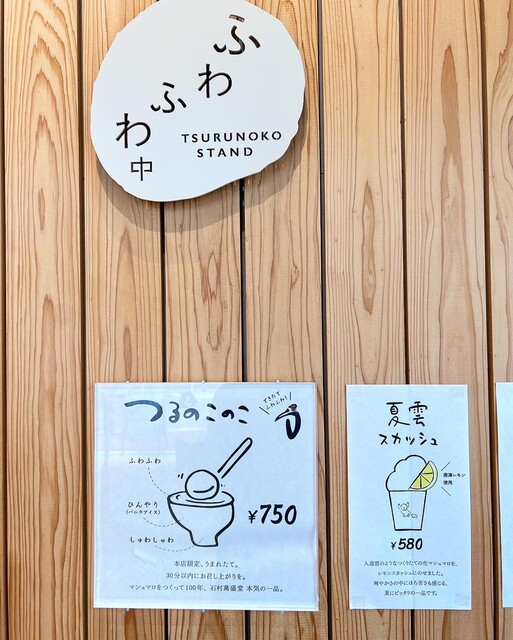 ふわふわ中
TSURUNOKO
STAND
つるのこのこ
できたて
ふわふわ!
ふわふわ
ひんやり
(バニラアイス)
しゅわしゅわ
¥750
本店限定、うまれたて。
30分以内にお召し上がりを。
マシュマロをつくって100年、石村萬盛堂 本気の一品。
夏雲
スカッシュ
レモン
使用
¥580
入道雲のようなつくりたての生マシュマロを、
レモンスカッシュにのせました。
爽やかさの中にほろ苦さも感じる、
夏にピッタリの一品です。